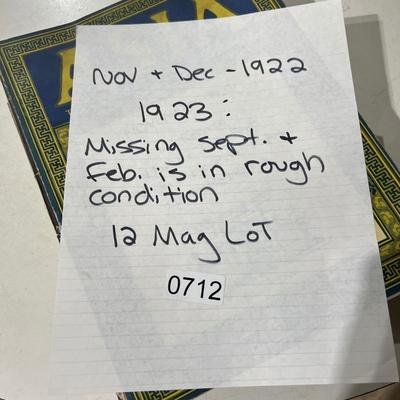 Nov + Dec - 1922
1923:
Missing Sept. +
Feb. is in rough
condition
12 Mag Lot
0712